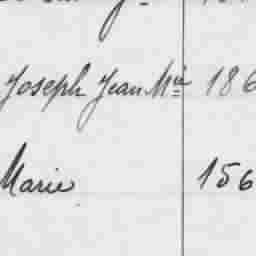 Joseph Jean Mie 186
Marie 156